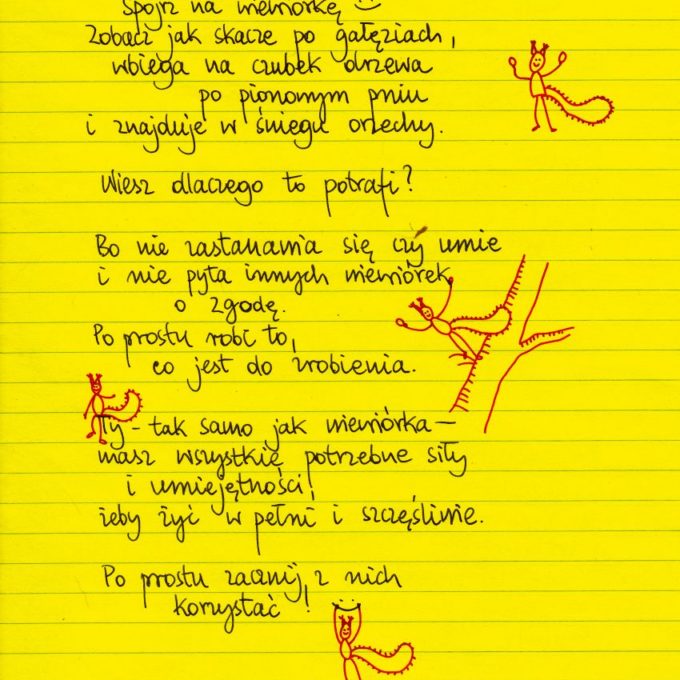 Spójrz na wiewiórkę
Zobacz jak skacze po gałęziach,
wbiega na czubek drzewa
po pionowym pniu
i znajduje w śniegu orzechy.
Wiesz dlaczego to potrafi?
Bo nie zastanawia się czy umie
i nie pyta innych wiewiórek
o zgodę.
Po prostu robi to,
co jest do zrobienia.
Ty - tak samo jak wiewiórka –
masz wszystkie potrzebne siły
i umiejętności,
żeby żyć w pełni i szczęśliwie.
Po prostu zacznij z nich
korzystać!